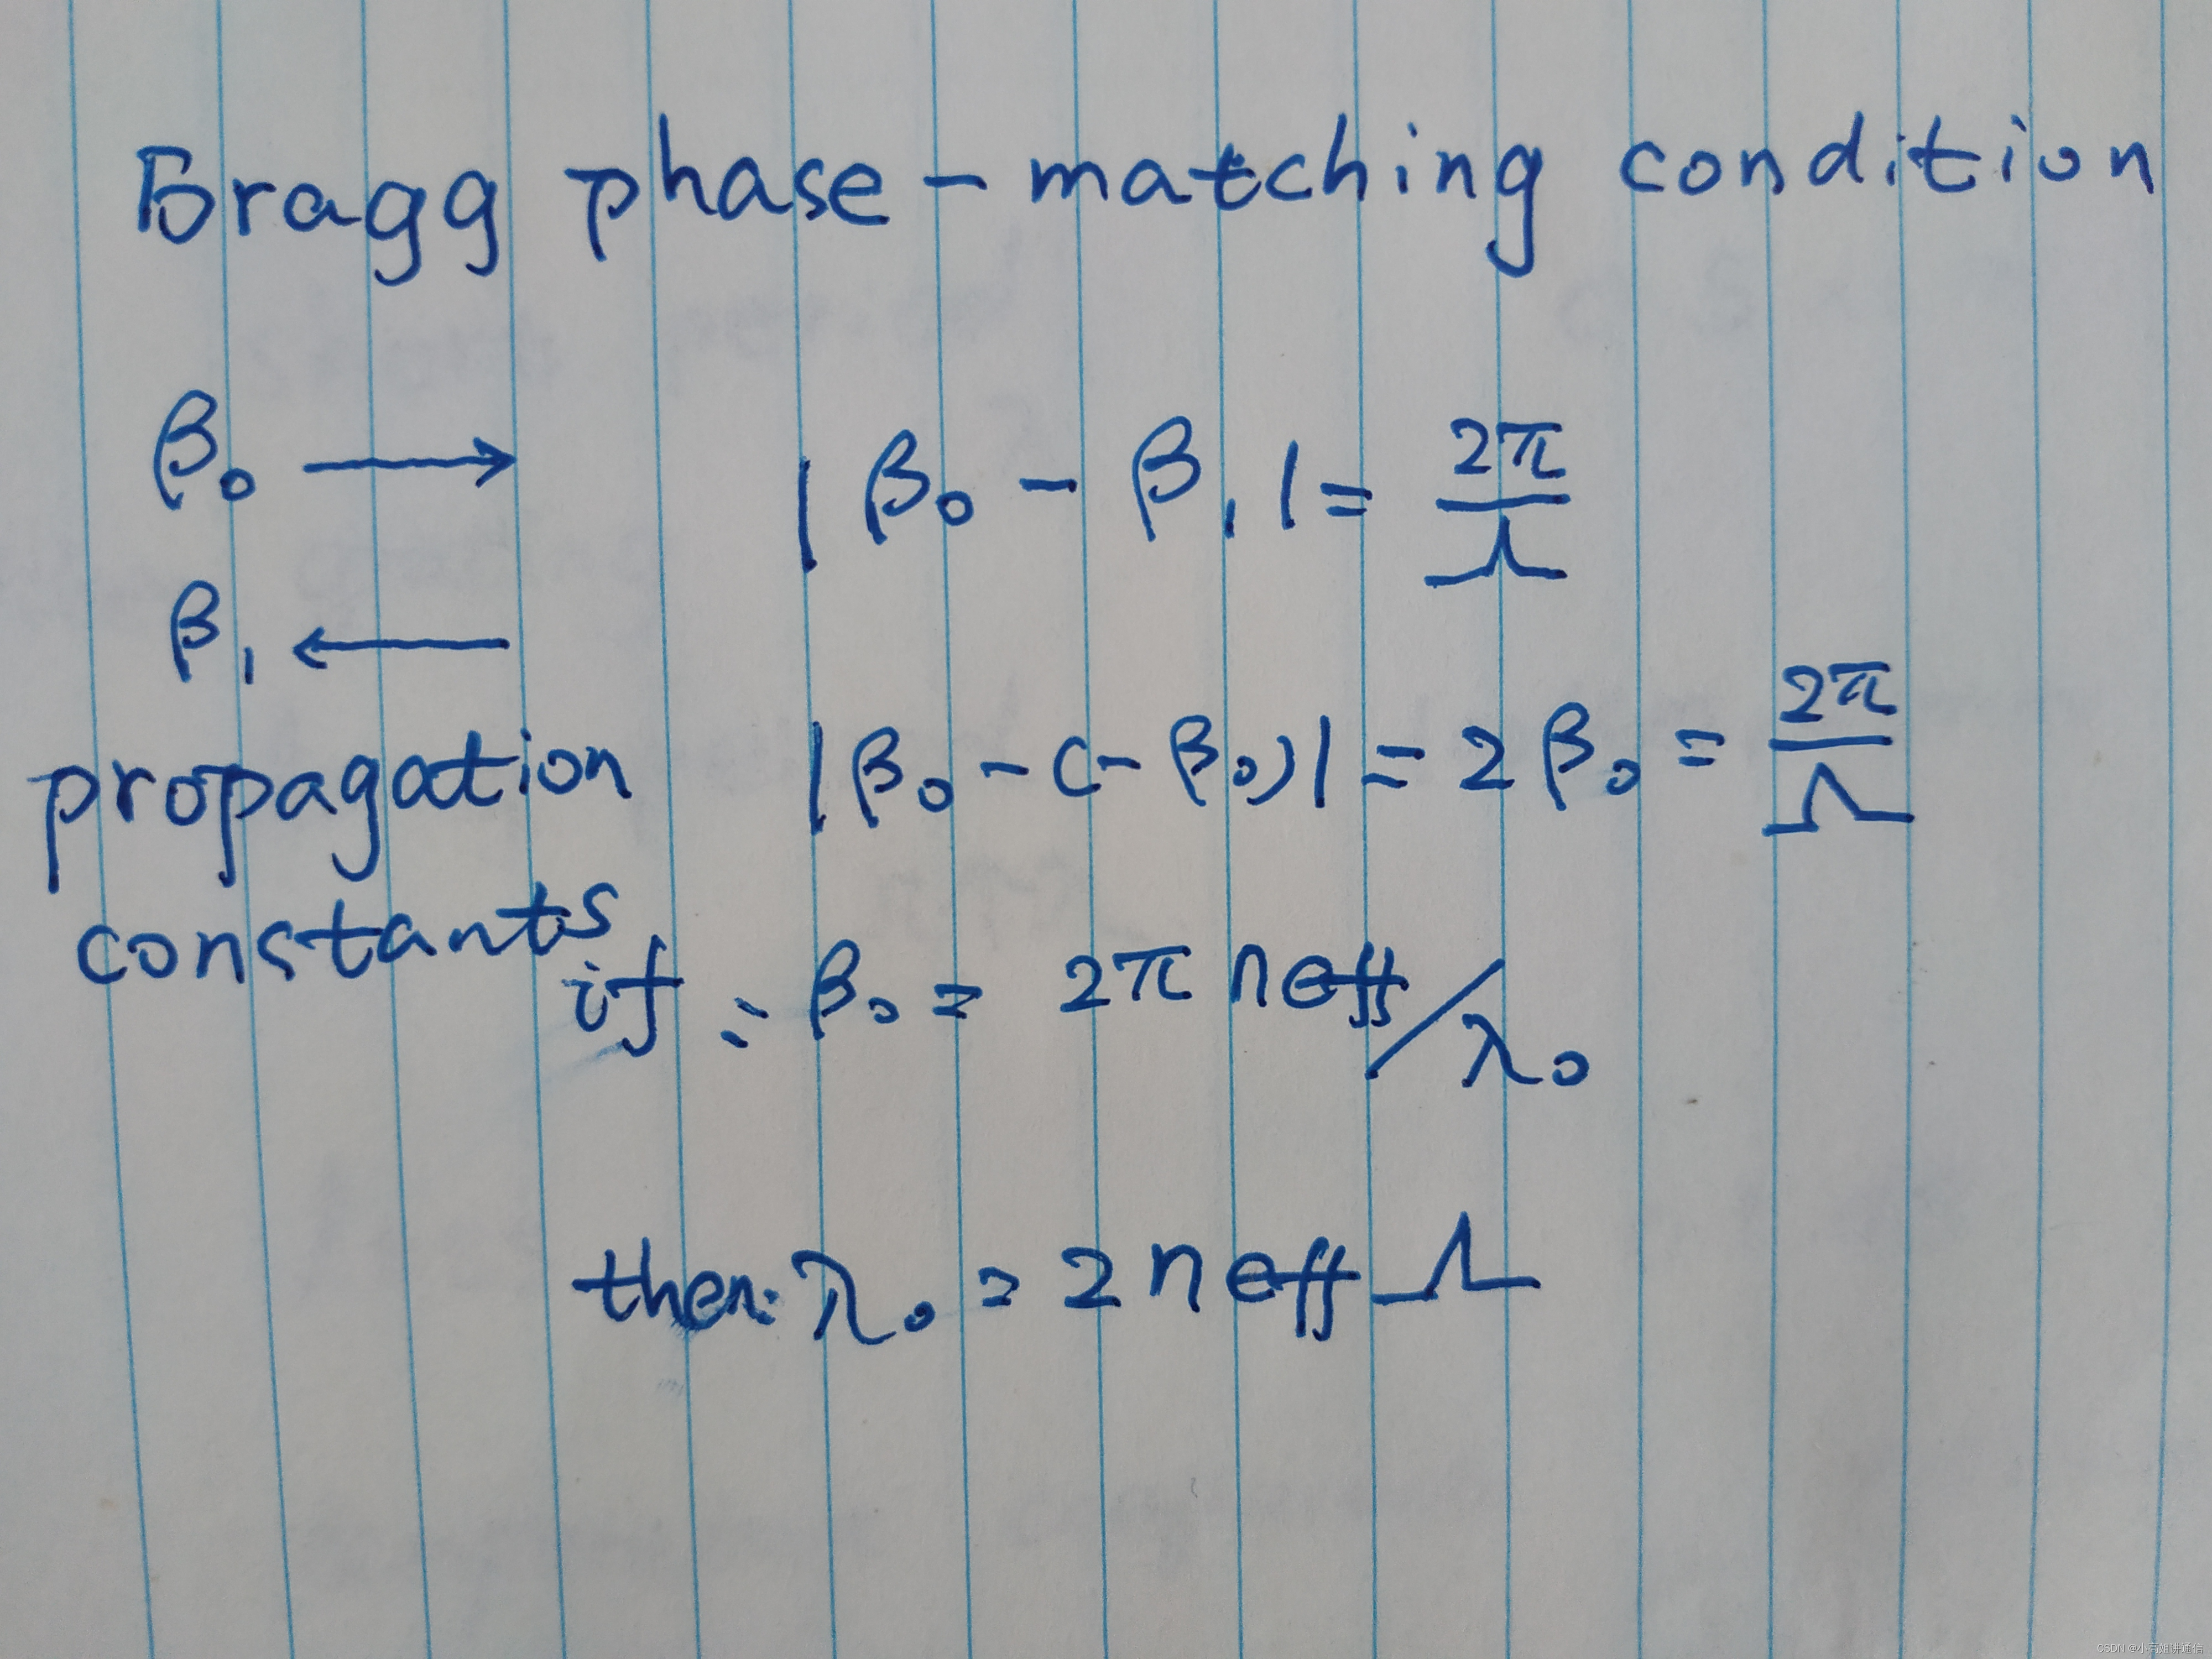 Bragg phase-matching condition
β₀ →
|β₀ - β₁| = 2π/Λ
β₁ ←
propagation
constants
|β₀ - (-β₀)| = 2β₀ = 2π/Λ
if = β₀ = 2π neff/λ₀
then: λ₀ = 2 neff Λ
CSDN @小菊姐讲通信